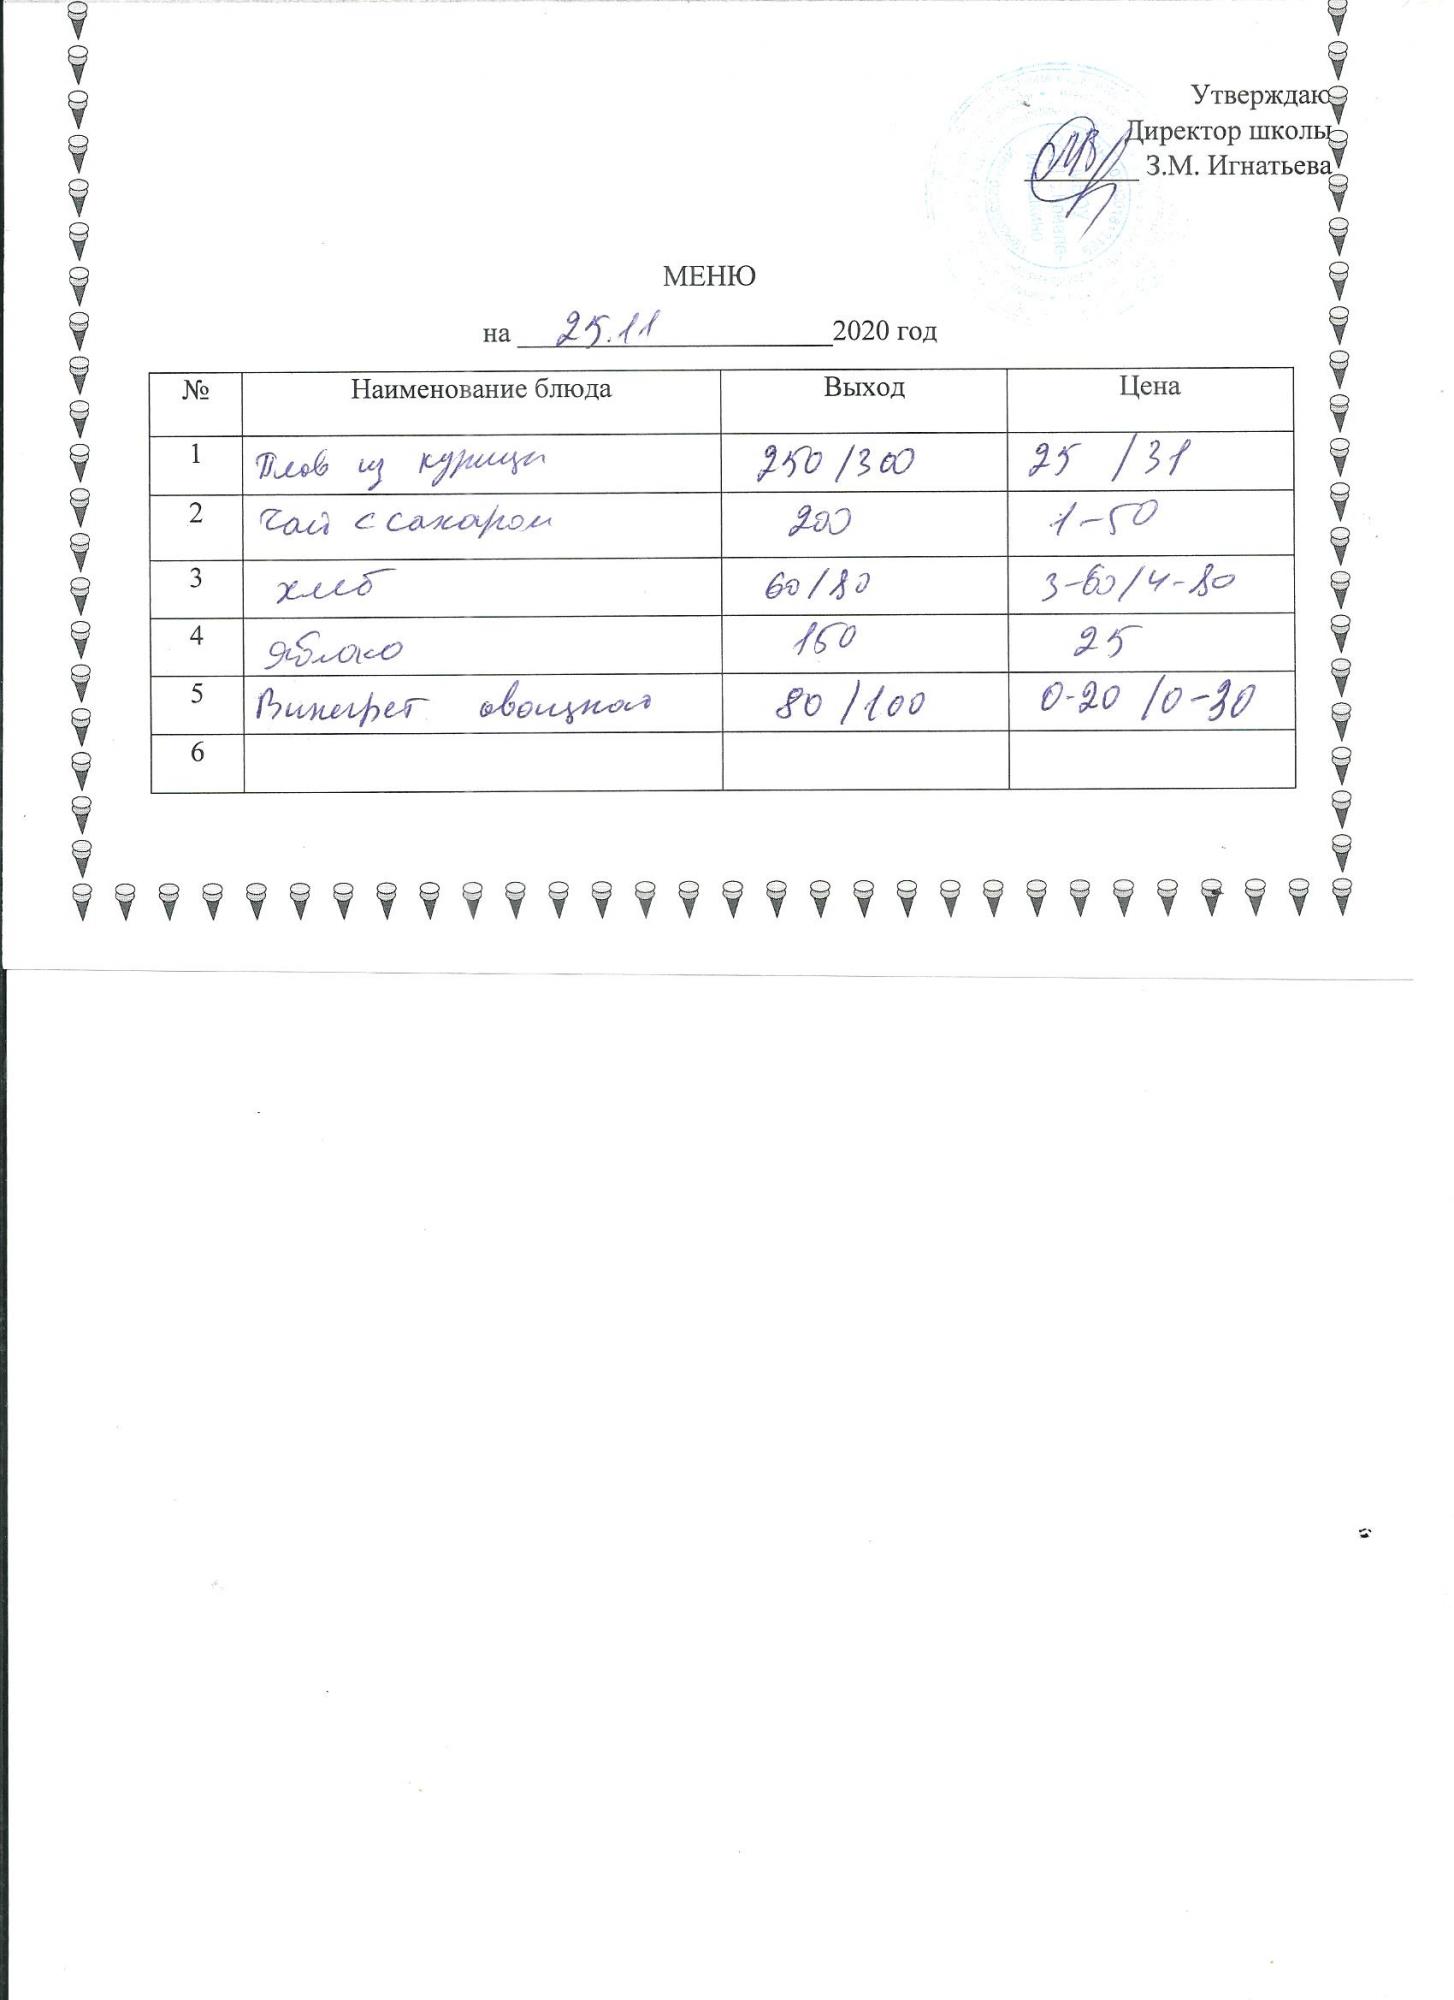 Утверждаю
Директор школы
З.М. Игнатьева
МЕНЮ
на 25.11 2020 год
№ Наименование блюда Выход Цена
1 Плов из курицы 250/300 25 /31
2 Чай с сахаром 200 1-50
3 хлеб 60/80 3-60/4-80
4 яблоко 150 25
5 Винегрет овощной 80/100 0-20 /0-30
6